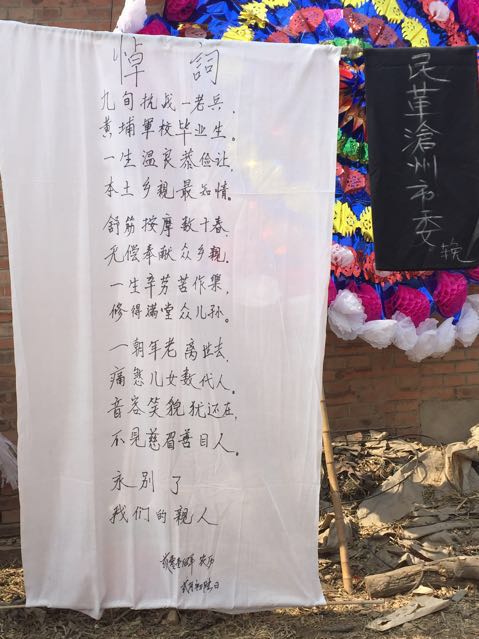 悼詞
九旬抗战一老兵，
黄埔軍校毕业生。
一生温良恭俭让，
本土乡親最知情。
舒筋按摩数十春，
无偿奉献众乡親。
一生辛劳苦作樂，
修得滿堂众儿孙。
一朝年老离世去，
痛煞儿女数代人。
音容笑貌犹还在，
不见慈眉善目人。
永别了
我们的親人
民革滄州市委
挽